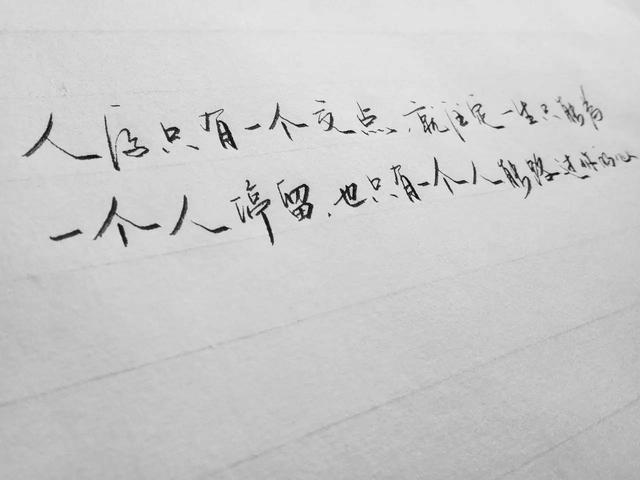 人若只有一个交点,就注定一生只能为
一个人停留,也只有一个人能路过你的心